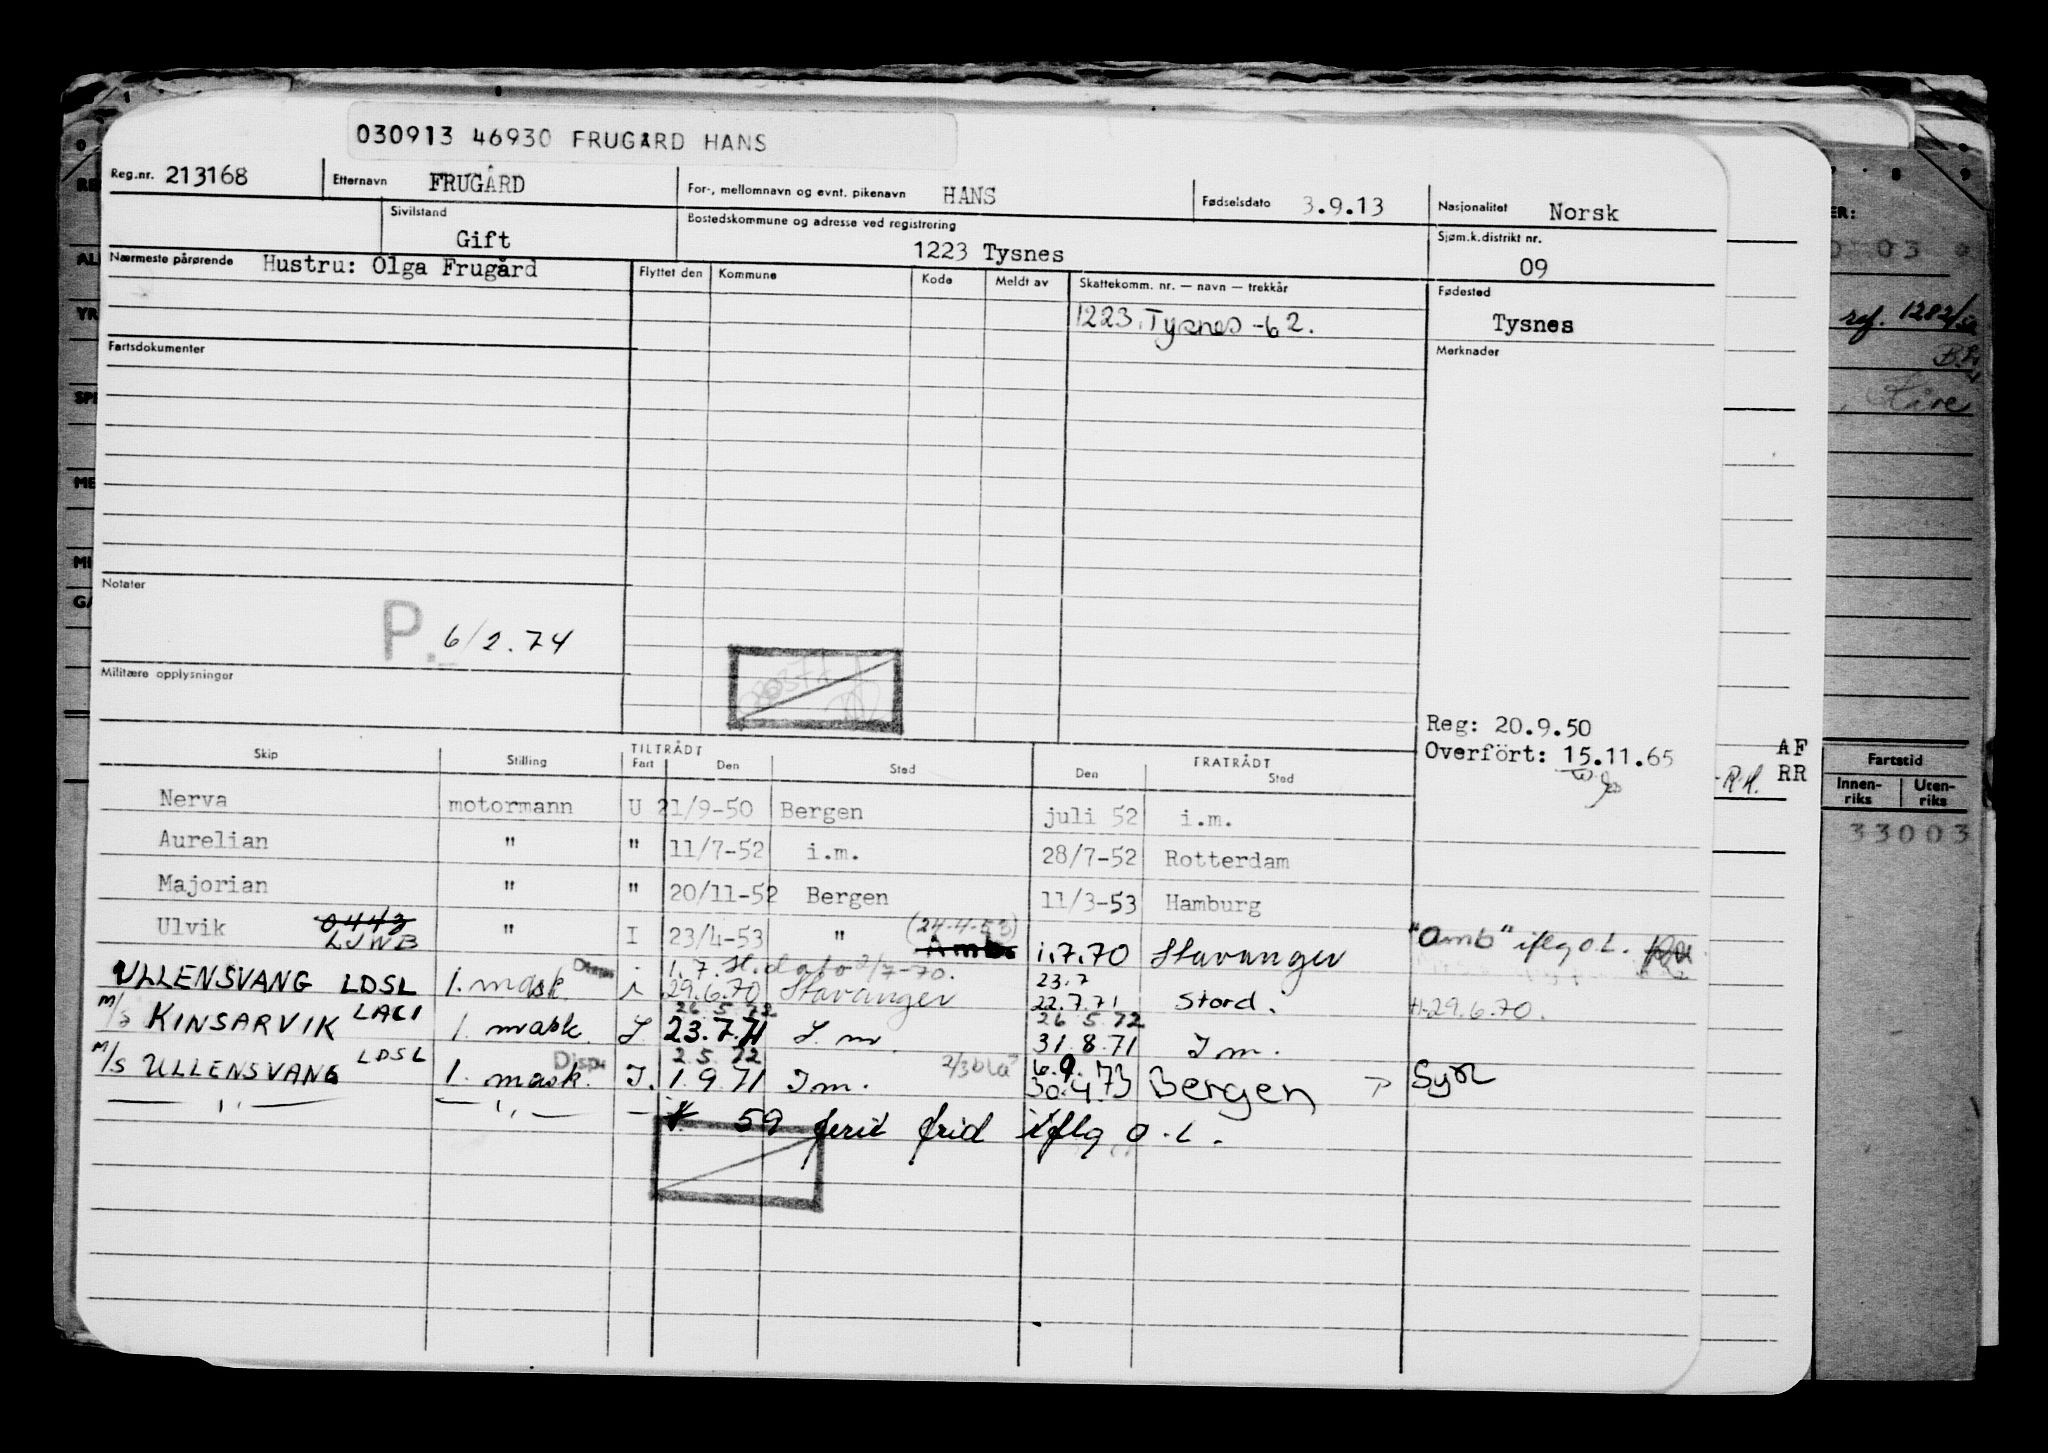 030913 46930 FRUGÅRD HANS
Reg.nr. 213168 Etternavn FRUGÅRD For-, mellomnavn og evnt. pikenavn HANS Fødselsdato 3.9.13 Nasjonalitet Norsk
Sivilstand Gift Bostedskommune og adresse ved registrering 1223 Tysnes Sjøm.k.distrikt nr. 09
Nærmeste pårørende Hustru: Olga Frugård Flyttet den Kommune Kode Meldt av Skattekomm. nr. — navn — trekkår Fødested Tysnes
1223 Tysnes -62.
Fartsdokumenter Merknader
Notater
P. 6/2.74
Militære opplysninger
Reg: 20.9.50
Overført: 15.11.65
TILTRÅDT FRATRÅDT
Skip Stilling Fart Den Sted Den Sted
Nerva motormann U 21/9-50 Bergen juli 52 i.m.
Aurelian " " 11/7-52 i.m. 28/7-52 Rotterdam
Majorian " " 20/11-52 Bergen 11/3-53 Hamburg
(24-4-53)
Ulvik 0443 LJWB " I 23/4-53 " Amb. 1.7.70 Stavanger "Amb" iflg o.L.
1.7. 2/7-70. 23.7
ULLENSVANG LDSL 1. mask. i 29.6.70 Stavanger 22.7.71 Stord. 29.6.70.
26.5.72 26.5.72
M/S KINSARVIK LACI 1. mask. I 23.7.71 I m. 31.8.71 I m.
Disp. 2.5.72 6.9.
M/S ULLENSVANG LDSL 1. mask. I. 1.9.71 I m. 30.4.73 Bergen
— " — — " — — 59 ferie frid iflg o.L.
ref. 1282/
AF
RR
-R.H.
Fartstid
Innen-
riks
Uten-
riks
33003